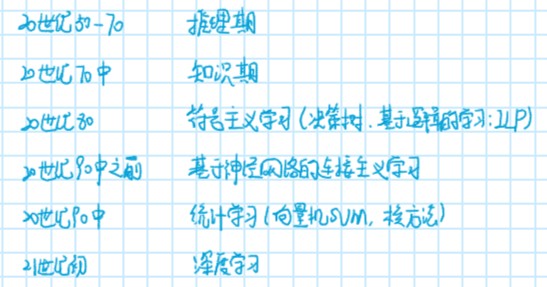 20世纪50-70 推理期
20世纪70中 知识期
20世纪80 符号主义学习(决策树.基于逻辑的学习:ILP)
20世纪90中之前 基于神经网络的连接主义学习
20世纪90中 统计学习(向量机SVM, 核方法)
21世纪初 深度学习